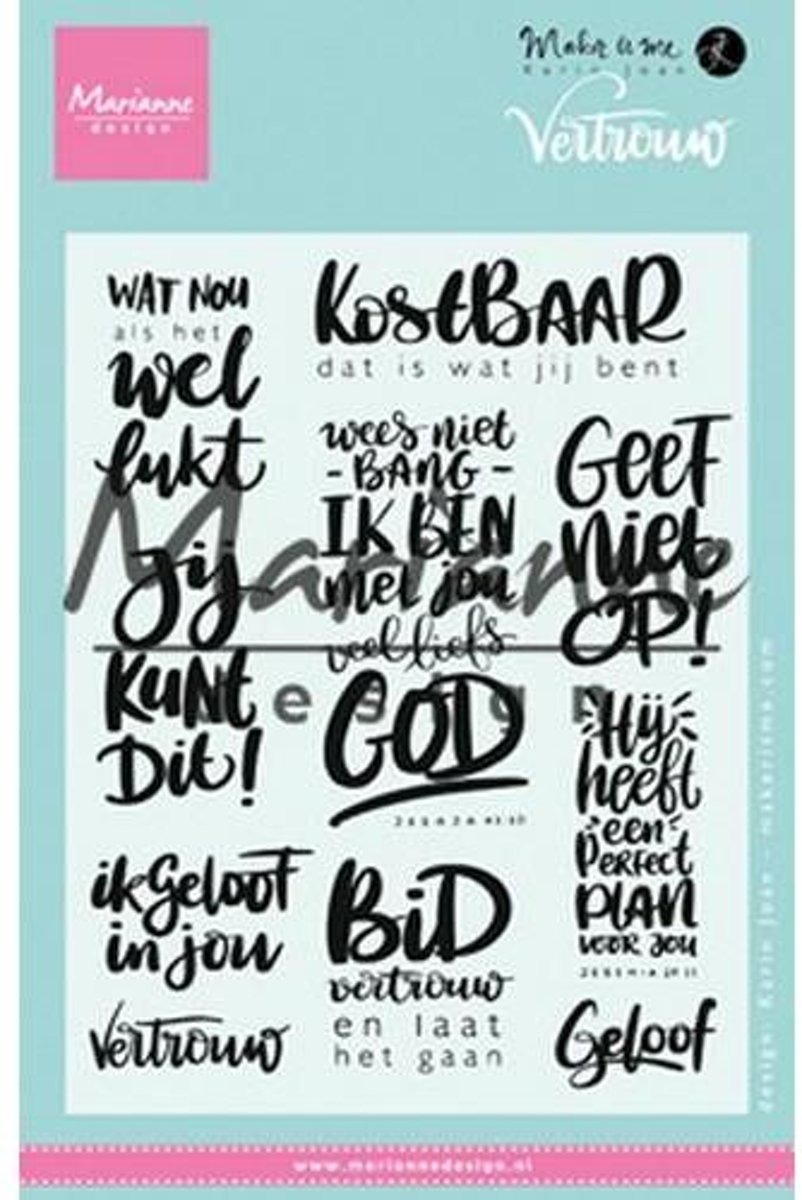 Marianne
design
Make it me
Karin Joan
Vertrouw
WAT NOU
als het
wel
lukt
KostBAAR
dat is wat jij bent
wees niet
- BANG -
IK BEN
met jou
veel liefs
GOD
JESAJA 41:10
GEEF
niet
OP!
Jij
KUNt
Dit!
Hij
heeft
een
PERFECT
PLAN
VOOR JOU
JEREMIA 29:11
ik Geloof
in jou
Vertrouw
BiD
vertrouw
en laat
het gaan
Geloof
Marianne
design
design: Karin Joan - makerisme.com
www.mariannedesign.nl